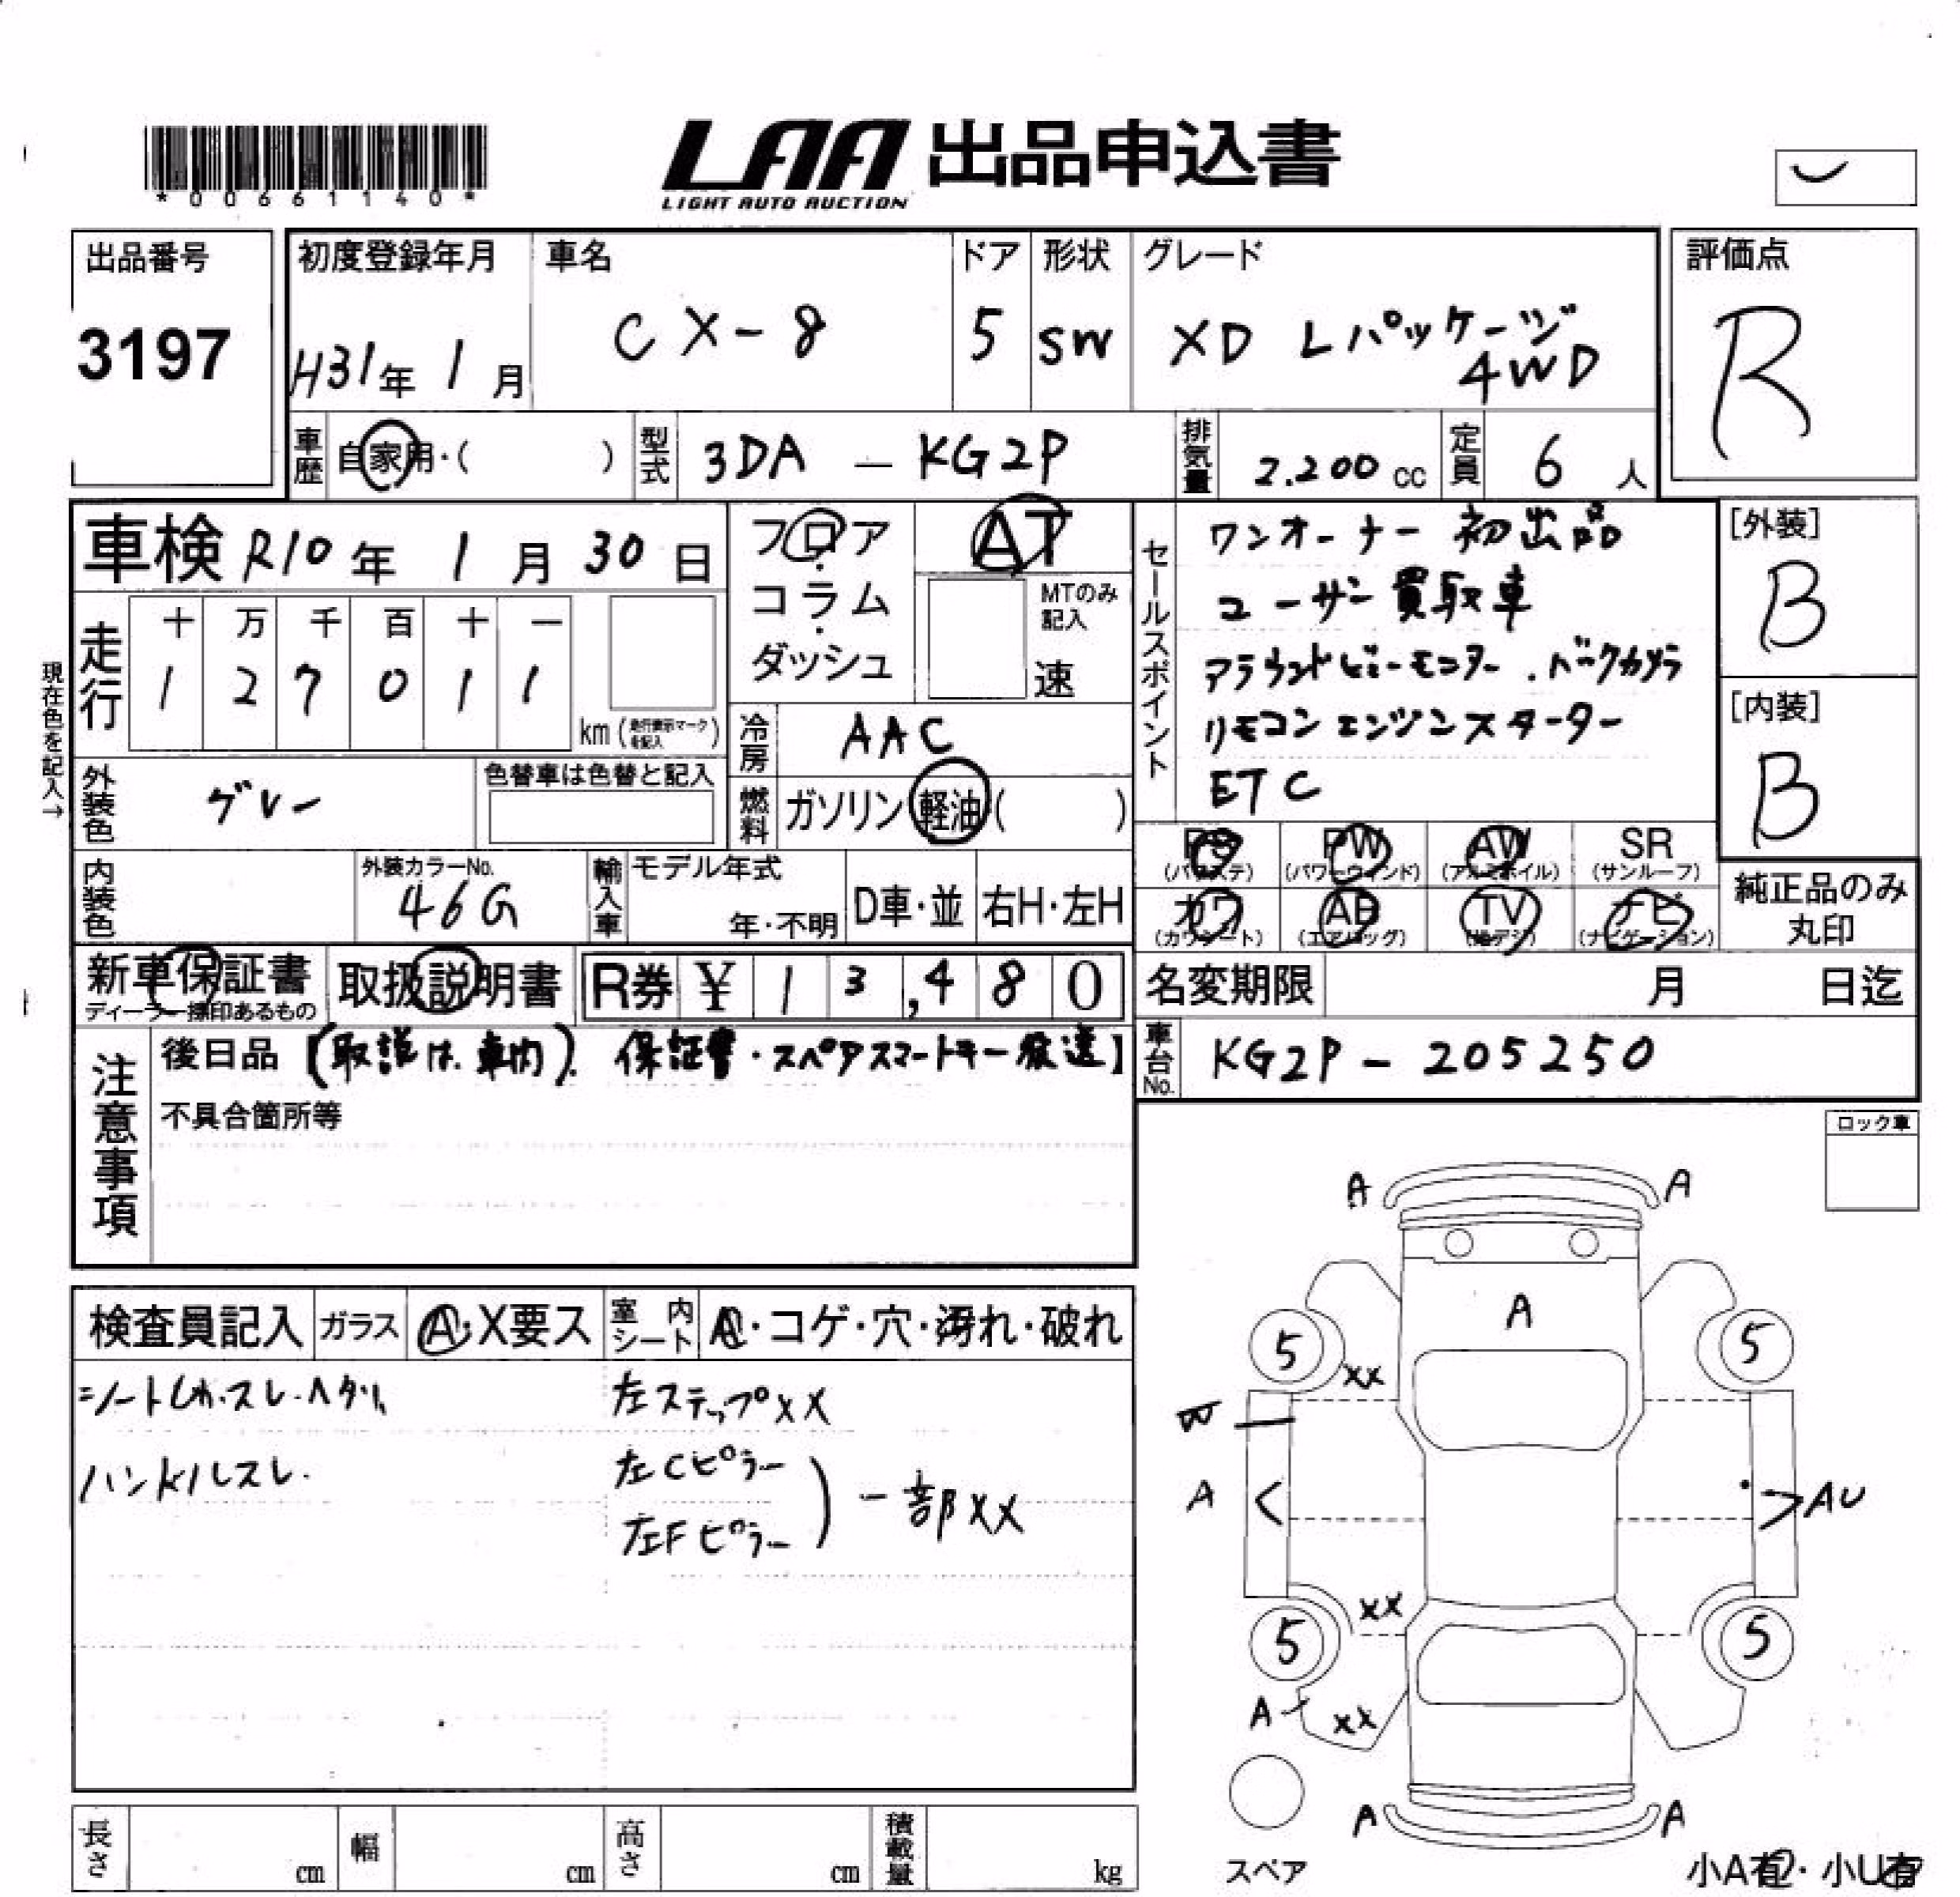 *00661140*
LAA 出品申込書
LIGHT AUTO AUCTION
出品番号
3197
初度登録年月
H31年 1月
車名
CX-8
ドア
5
形状
SW
グレード
XD Lパッケージ
4WD
評価点
R
車歴
自家用・( )
型式
3DA - KG2P
排気量
2.200 cc
定員
6 人
車検 R10年 1月 30日
フロア・コラム・ダッシュ
AT
MTのみ記入
速
セールスポイント
ワンオーナー 初出品
ユーザー買取車
アラウンドビューモニター.バックカメラ
リモコンエンジンスターター
ETC
[外装]
B
[内装]
B
現在色を記入→
走行
十 万 千 百 十 一
1 2 7 0 1 1
km (走行表示マークを記入)
冷房
AAC
外装色
グレー
色替車は色替と記入
燃料
ガソリン 軽油 ( )
PS
(パワステ)
PW
(パワーウィンド)
AW
(アルミホイル)
SR
(サンルーフ)
カワ
(カワシート)
AB
(エアバッグ)
TV
(地デジ)
ナビ
(ナビゲーション)
純正品のみ
丸印
内装色
外装カラーNo.
46G
輸入車
モデル年式
年・不明
D車・並
右H・左H
新車保証書
ディーラー捺印あるもの
取扱説明書
R券 ¥ 1 3,4 8 0
名変期限 月 日迄
注意事項
後日品 [(取説は車内). 保証書・スペアスマートキー発送]
不具合箇所等
車台No.
KG2P - 205250
ロック車
検査員記入
ガラス
A・X要ス
室内シート
A・コゲ・穴・汚れ・破れ
シートしわ.スレ.ヘタリ
ハンドルスレ.
左ステップXX
左Cピラー
左Fピラー
) 一部XX
A A
A
5 5
XX
W
A
AU
XX
5 5
A XX
A A
スペア
長さ cm
幅 cm
高さ cm
積載量 kg
小A有・小U有